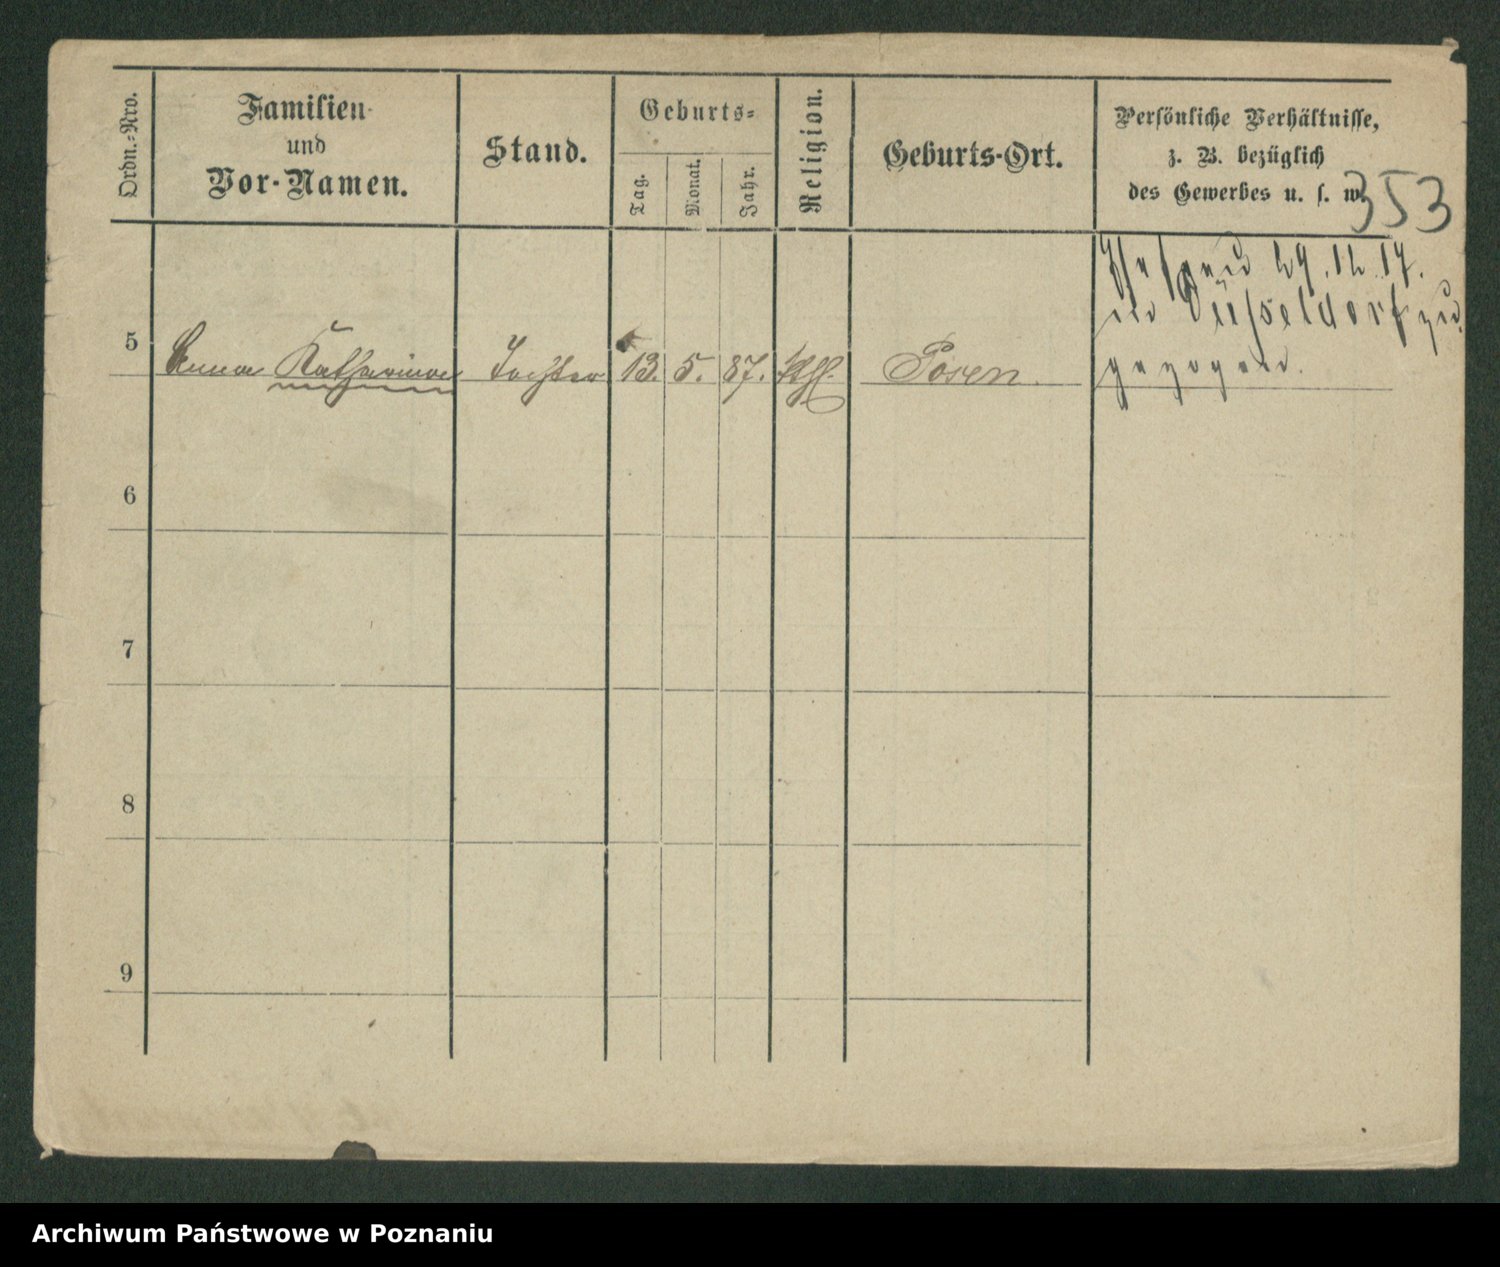 Ordn.-Nro.
Familien-
und
Vor-Namen.
Stand.
Geburts-
Tag.
Monat.
Jahr.
Religion.
Geburts-Ort.
Persönliche Verhältnisse,
z. B. bezüglich
des Gewerbes u. s. w.
353
5
Anna Katharina
Tochter
13.
5.
87.
Kth.
Posen
29.12.17.
in Düsseldorf zu-
gezogen.
6
7
8
9
Archiwum Państwowe w Poznaniu